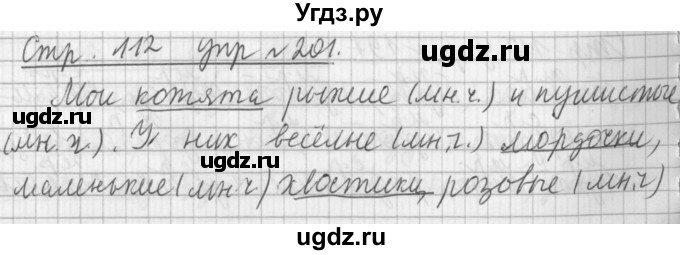 Угдз.ру
Стр. 112 упр №201.
ugdz.ru
ugdz.ru
Мои котята рыжие (мн.ч.) и пушистые
ugdz.ru
(мн.ч.). У них весёлые (мн.ч.) мордочки,
ugdz.ru
маленькие (мн ч) хвостики, розовые (мн.ч)
ugdz.ru